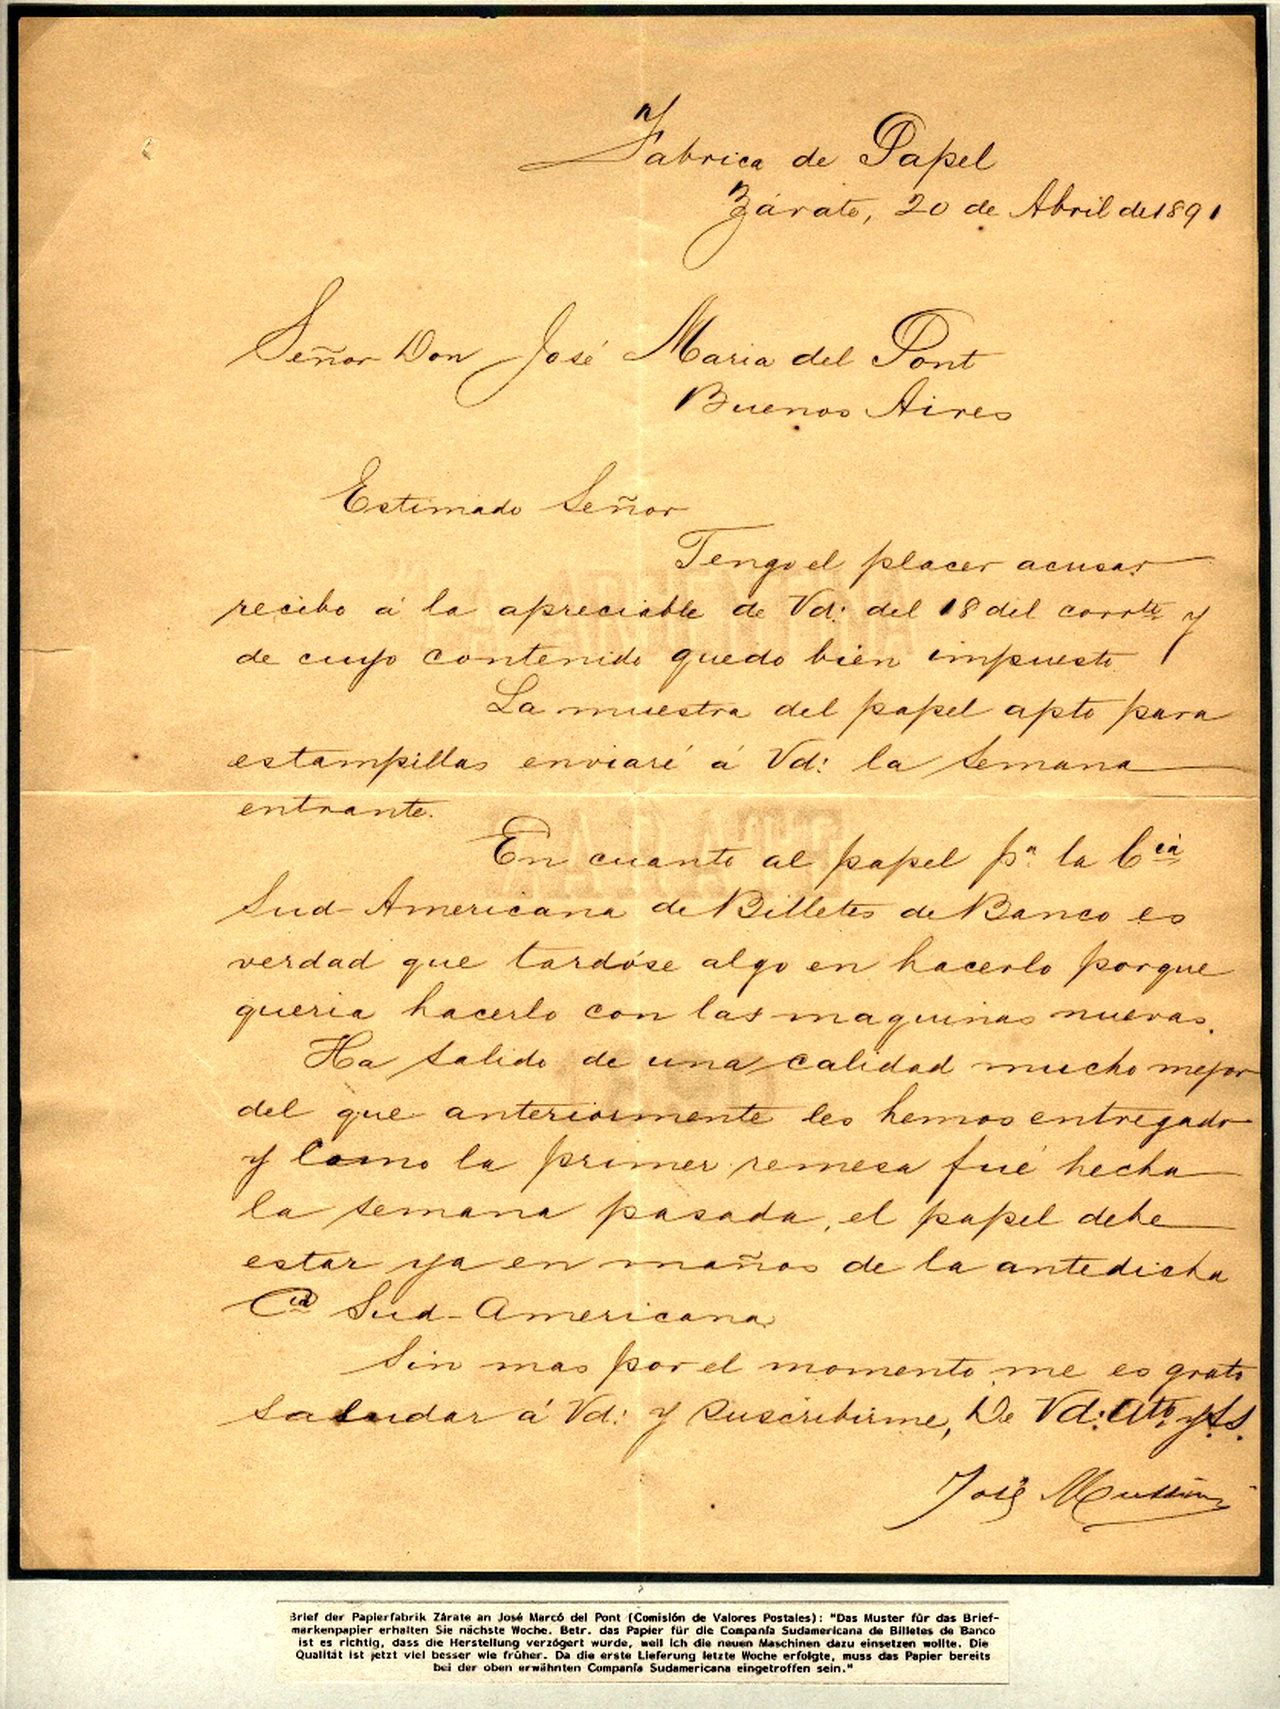 Fabrica de Papel
Zárate, 20 de Abril de 1891
Señor Don José Maria del Pont
Buenos Aires
Estimado Señor
Tengo el placer acusar
recibo á la apreciable de Vd: del 18 del corrte y
de cuyo contenido quedo bien impuesto
La muestra del papel apto para
estampillas enviaré á Vd: la semana
entrante.
En cuanto al papel pa. la Cia
Sud-Americana de Billetes de Banco es
verdad que tardóse algo en hacerlo porque
queria hacerlo con las maquinas nuevas.
Ha salido de una calidad mucho mejor
del que anteriormente les hemos entregado
y como la primer remesa fué hecha
la semana pasada, el papel debe
estar ya en maños de la antedicha
Cia Sud-Americana
Sin mas por el momento me es grato
saludar á Vd: y suscribirme, De Vd: Ato y S.S.
José
Brief der Papierfabrik Zárate an José Marcó del Pont (Comisión de Valores Postales): "Das Muster für das Brief-
markenpapier erhalten Sie nächste Woche. Betr. das Papier für die Companía Sudamericana de Billetes de Banco
ist es richtig, dass die Herstellung verzögert wurde, weil ich die neuen Maschinen dazu einsetzen wollte. Die
Qualität ist jetzt viel besser wie früher. Da die erste Lieferung letzte Woche erfolgte, muss das Papier bereits
bei der oben erwähnten Companía Sudamericana eingetroffen sein."